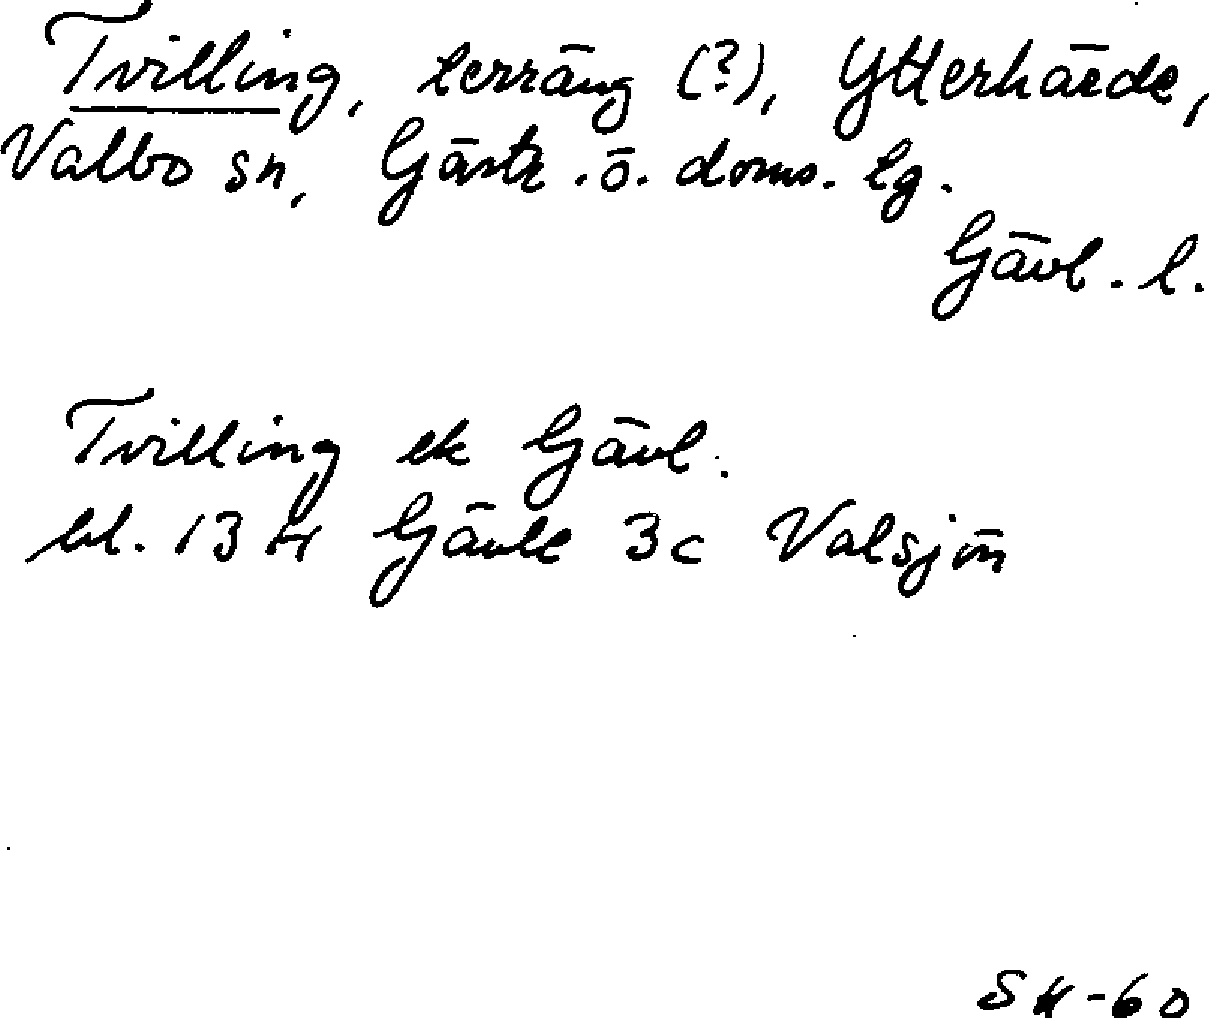 Tvilling, terräng (?), Ytterhärde,
Valbo sn, Gästr. ö. doms. lg.
Gävl. l.
Tvilling ek Gävl.
bl. 13 H Gävle 3c Valsjön
SH-60